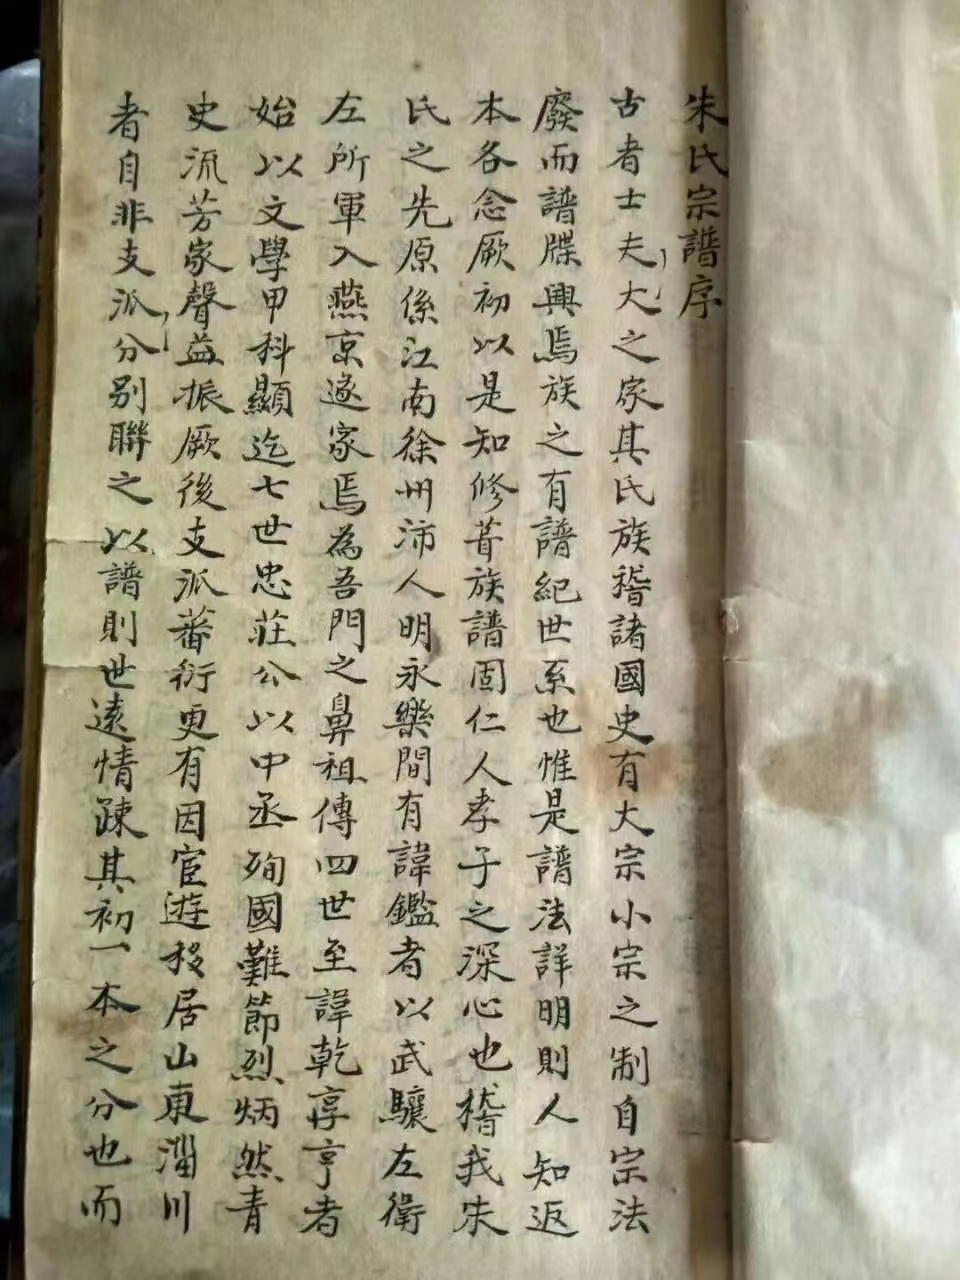 朱氏宗譜序
古者士夫大之家其氏族稽諸國史有大宗小宗之制自宗法
廢而譜牒興焉族之有譜紀世系也惟是譜法詳明則人知返
本各念厥初以是知修葺族譜固仁人孝子之深心也稽我朱
氏之先原係江南徐州沛人明永樂間有諱鑑者以武驤左衛
左所軍入燕京遂家焉為吾門之鼻祖傳四世至諱乾享亨者
始以文學甲科顯迄七世忠莊公以中丞殉國難節烈炳然青
史流芳家聲益振厥後支派蕃衍更有因宦遊移居山東淄川
者自非支派分別聯之以譜則世遠情疎其初一本之分也而